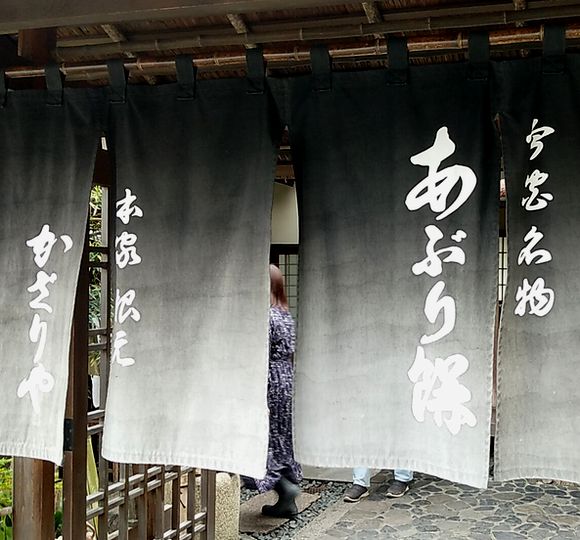 今宮名物
あぶり餅
本家根元
かざりや